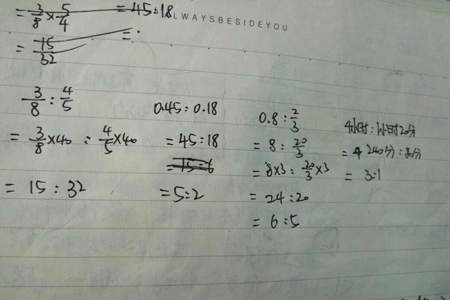 = 3/8 × 5/4 = 45:18
ALWAYSBESIDEYOU
= 15/32 =
3/8 : 4/5
= 3/8×40 : 4/5×40
= 15 : 32
0.45 : 0.18
= 45:18
= 15:6
= 5:2
0.8 : 2/3
= 8 : 20/3
= 8×3 : 20/3×3
= 24:20
= 6:5
4小时 : 1小时20分
= 240分 : 80分
= 3:1